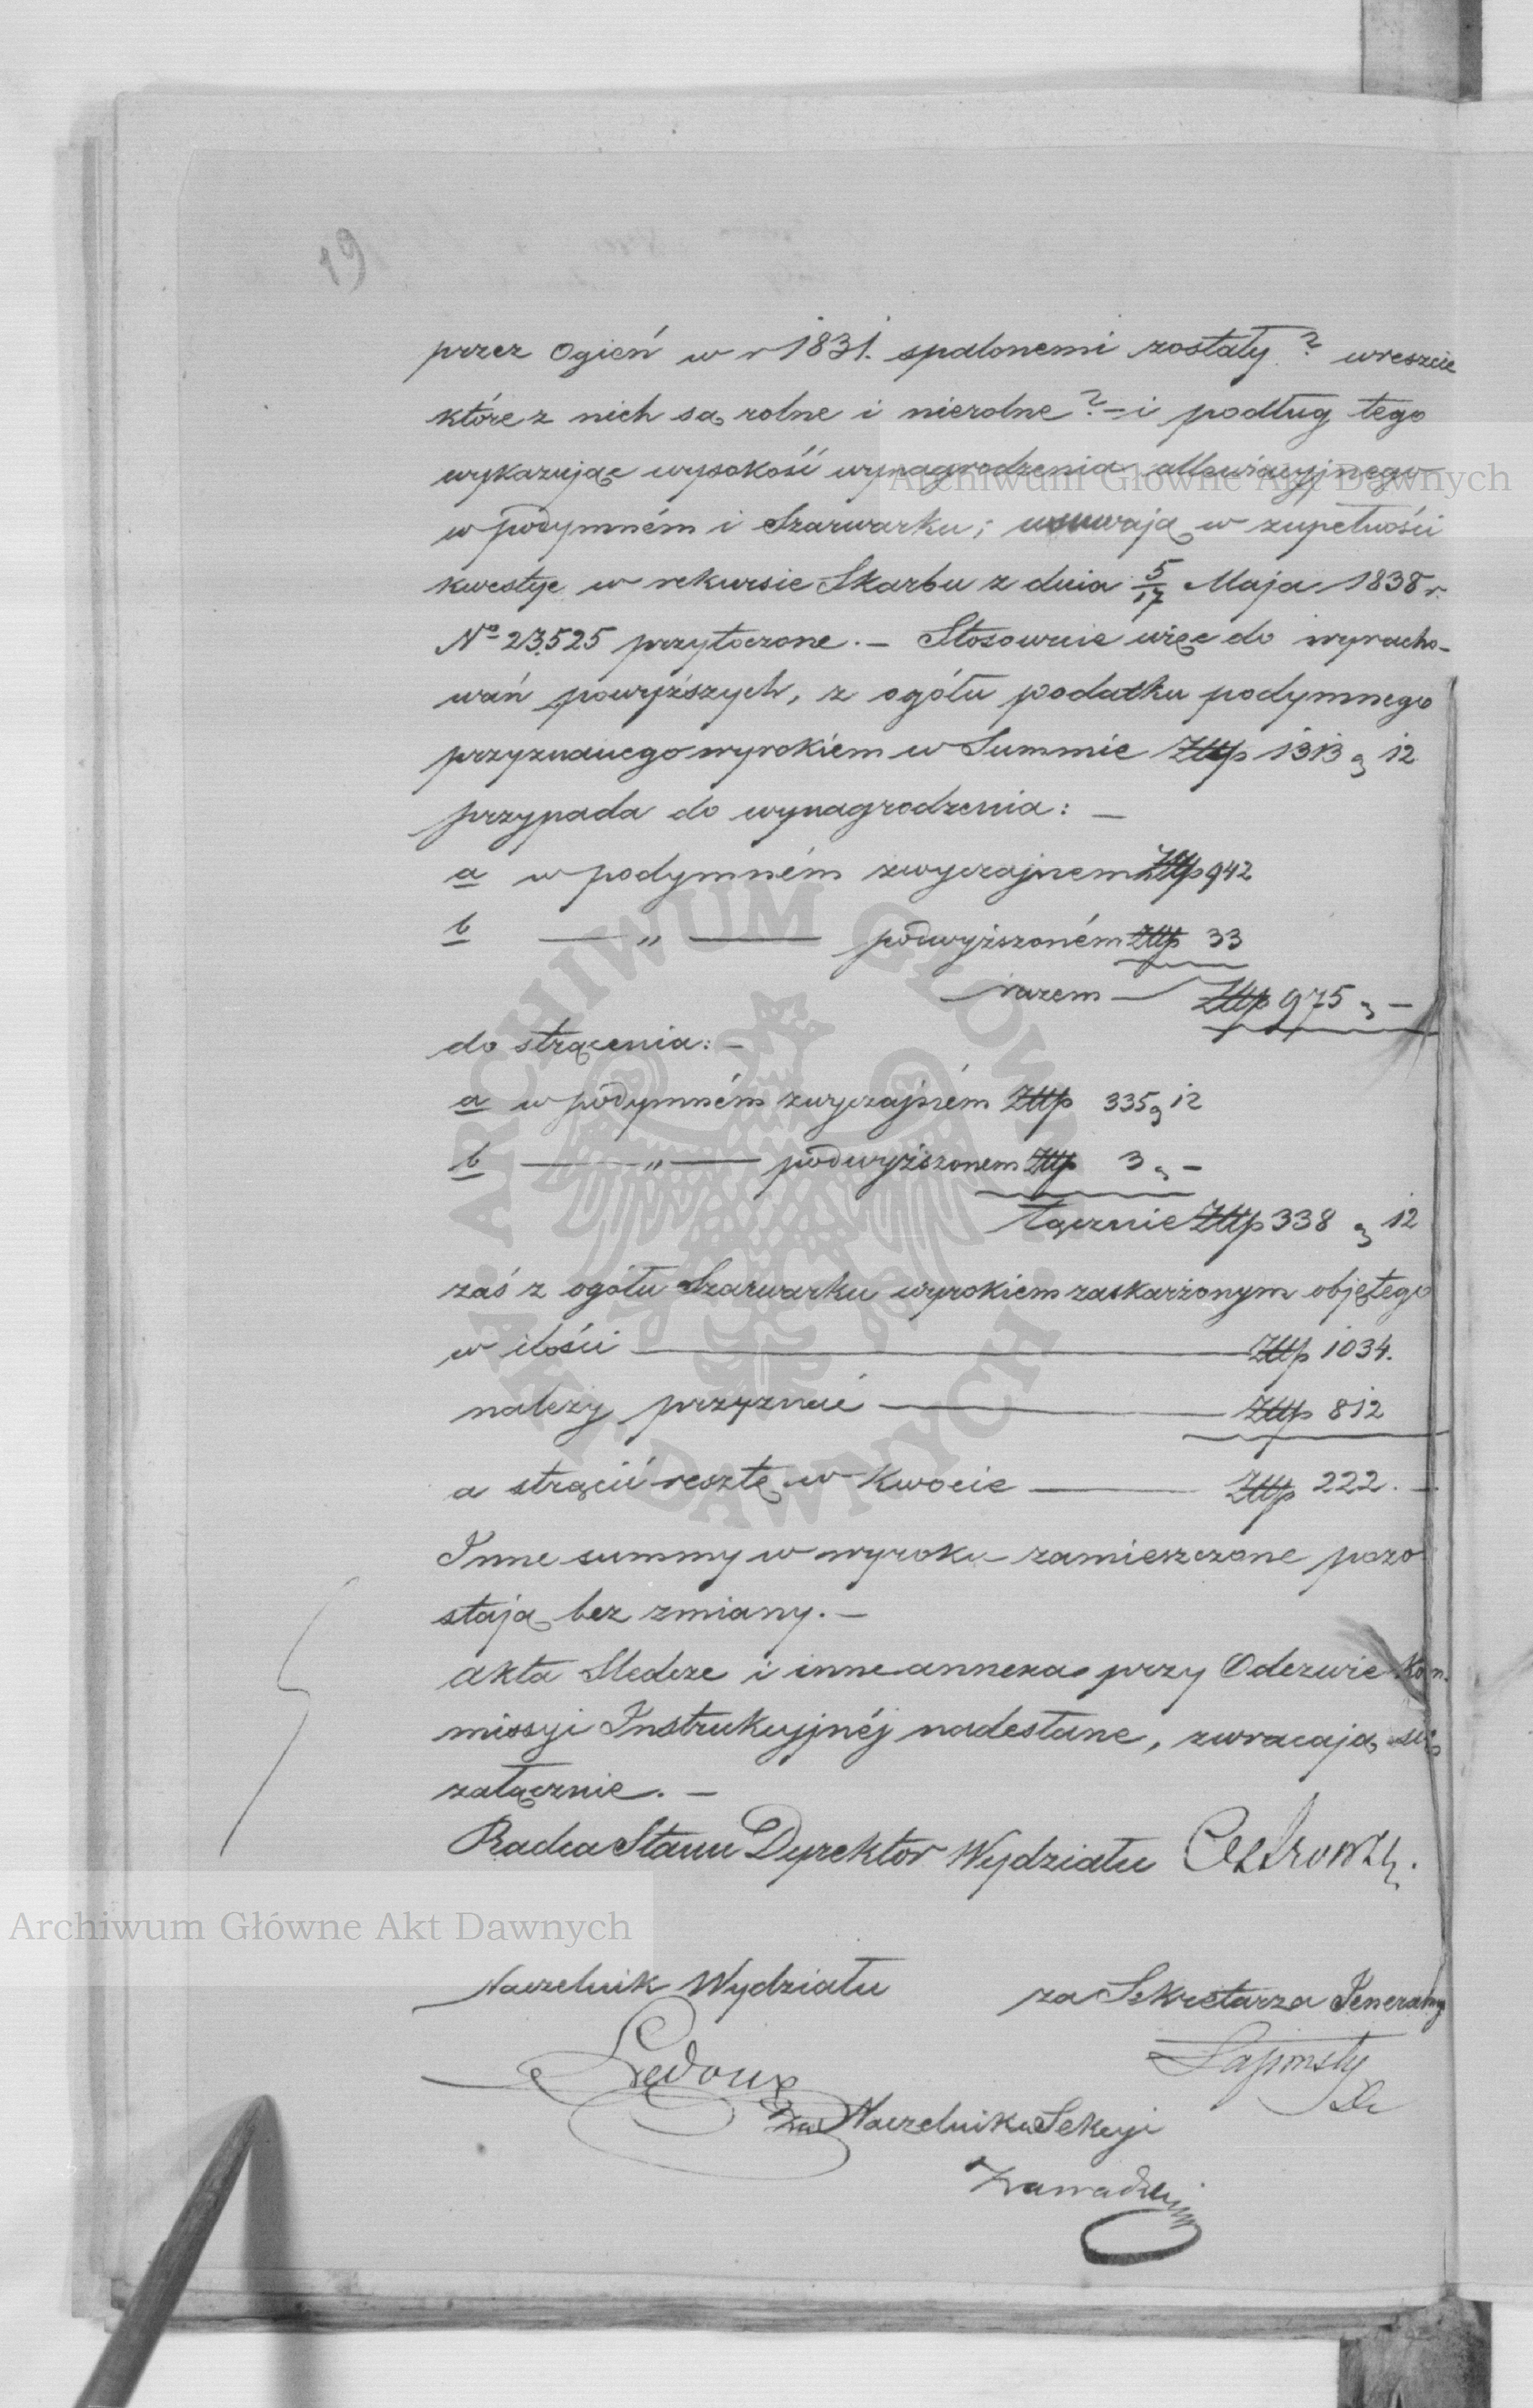 19
przez Ogień w r 1831. spalonemi zostały? wreszcie
które z nich są rolne i nierolne? – i podług tego
wykazując wysokość wynagrodzenia allewiacyjnego
Archiwum Główne Akt Dawnych
w podymném i Szarwarku; usuwają w zupełności
kwestye w rekursie Skarbu z dnia 5/17 Maja 1838 r.
No 23525 przytoczone. – Stosownie więc do wyracho-
wań powyższych, z ogółu podatku podymnego
przyznanego wyrokiem w Summie Złtp 1313 g 12
przypada do wynagrodzenia: –
a w podymném zwyczajnem Złtp 942
b — „ — podwyższoném Złtp 33
razem — Złtp 975 g –
do strącenia: –
a w podymném zwyczajném Złtp 335 g 12
b — „ — podwyższonem Złtp 3 g –
łącznie Złtp 338 g 12
zaś z ogółu Szarwarku wyrokiem zaskarżonym objętego
w ilości — Złtp 1034.
należy przyznać — Złtp 812
a strącić resztę w kwocie — Złtp 222. –
Inne summy w wyroku zamieszczone pozo
stają bez zmiany. –
akta Śledcze i inne annexa przy Odezwie Kom.
missyi Instrukcyjnéj nadesłane, zwracają się
załącznie. –
Radca Stanu Dyrektor Wydziału
Archiwum Główne Akt Dawnych
Naczelnik Wydziału za Sekretarza Jeneralnego
Ledoux
za Naczelnika Sekcyi
Zawadzki
ARCHIWUM GŁÓWNE
AKT DAWNYCH